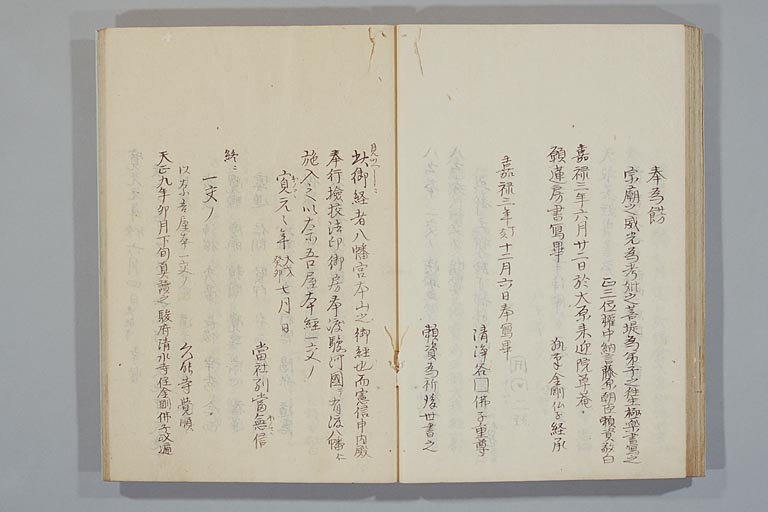 奉為餝
宗廟之威光為考妣之菩提為弟子之往生極楽書写之
正三位権中納言藤原朝臣頼資敬白
嘉禄三年六月廿二日於大原来迎院草菴
執筆金剛仏子経承
願蓮房書写畢
嘉禄三年丁亥十二月六日奉写畢
清浄谷□佛子重尊
頼資為祈後世書之
此御経者八幡宮本山之御経也而憲信申内威
奉行検校法印御房奉渡駿河國有渡八幡仁
施入之以本五古屋本経一交了
寛元々年癸卯七月 日
當社別當無信
終
一交了
以本吉屋本一交了 久能寺覚順
天正九年卯月下旬真読之駿府清水寺住金剛佛子政遍